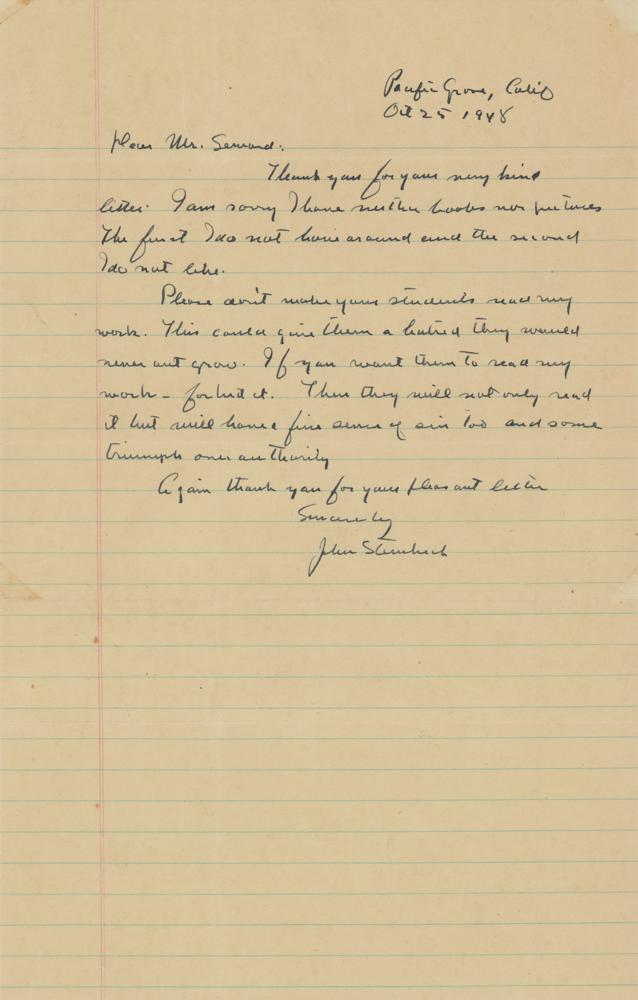 Pacific Grove, Calif
Oct 25 1948
Dear Mr. Seward:
Thank you for your very kind
letter. I am sorry I have neither books nor pictures
The first I do not have around and the second
I do not like.
Please don't make your students read my
work. This could give them a hatred they would
never out grow. If you want them to read my
work - forbid it. Then they will not only read
it but will have a fine sense of sin too and some
triumph over authority
Again thank you for your pleasant letter
Sincerely
John Steinbeck